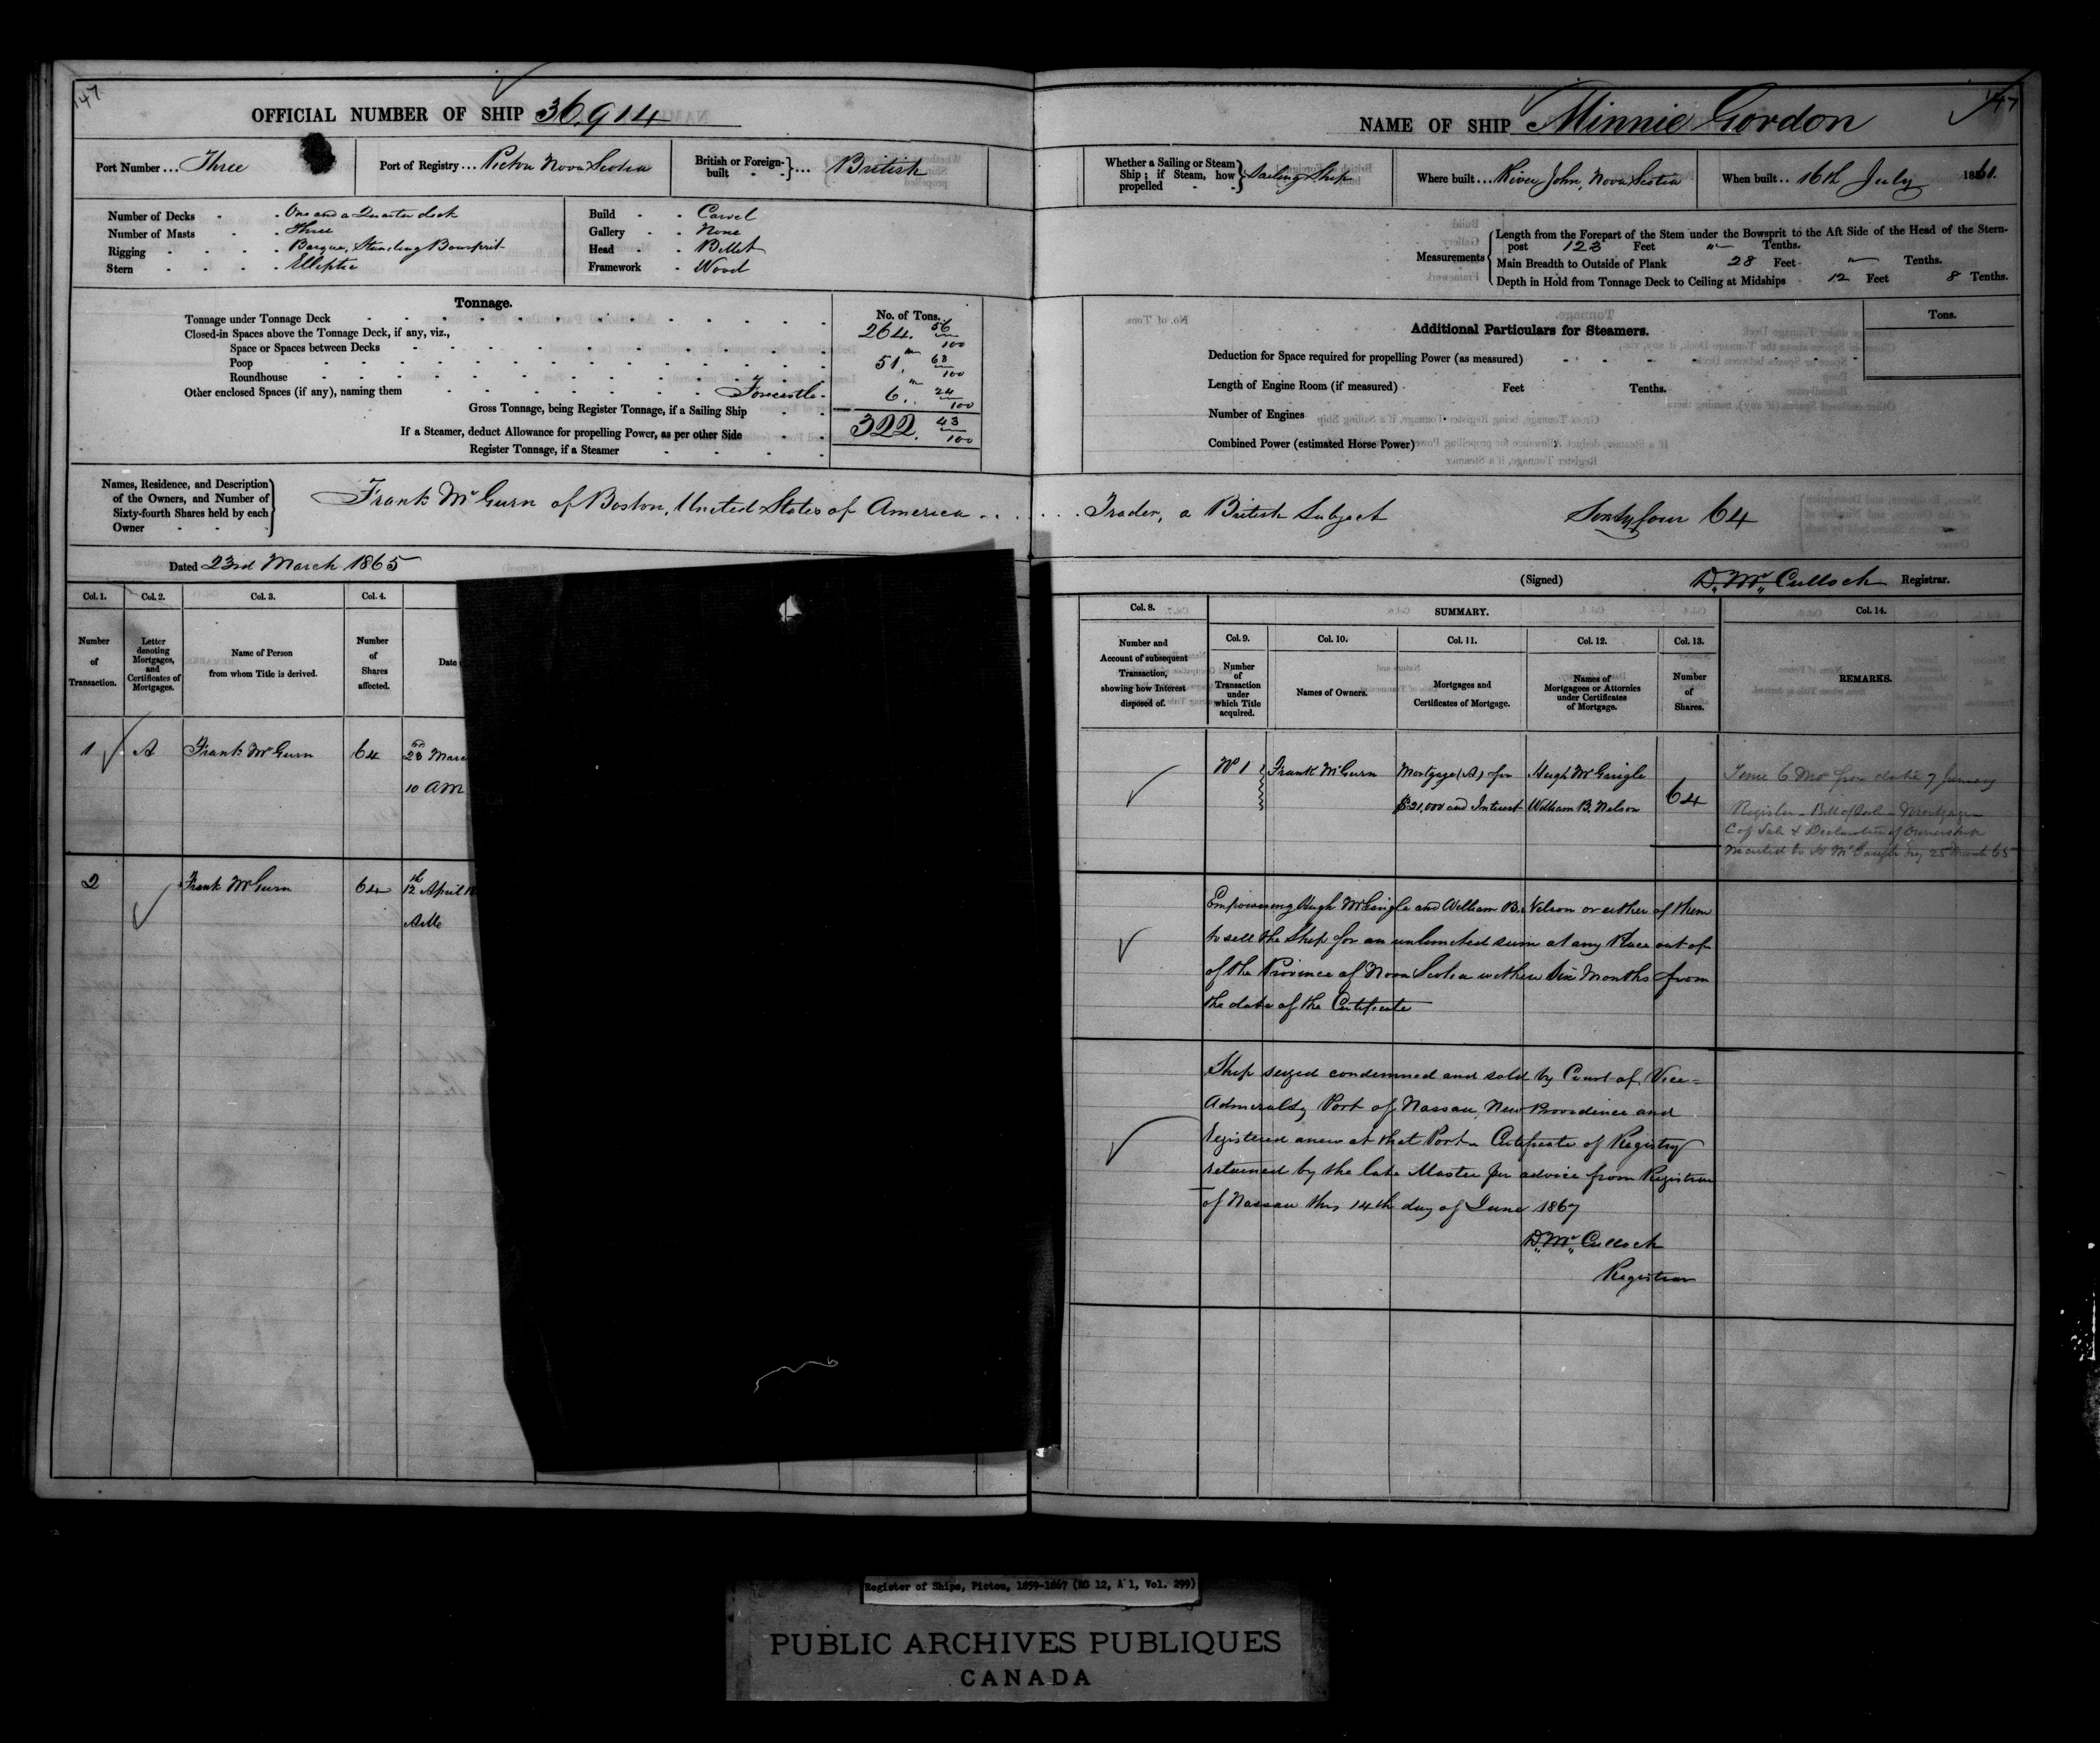 147
OFFICIAL NUMBER OF SHIP 36,914
Port Number ... Three
Port of Registry ... Pictou Nova Scotia
British or Foreign-built ... British
Number of Decks - One and a Quarter deck
Number of Masts - Three
Rigging - Barque, Standing Bowsprit
Stern - Elliptic
Build - Carvel
Gallery - None
Head - Billet
Framework - Wood
Tonnage.
No. of Tons.
Tonnage under Tonnage Deck 264. 56/100
Closed-in Spaces above the Tonnage Deck, if any, viz.,
Space or Spaces between Decks
Poop 51. 63/100
Roundhouse
Other enclosed Spaces (if any), naming them Forecastle 6. 24/100
Gross Tonnage, being Register Tonnage, if a Sailing Ship 322. 43/100
If a Steamer, deduct Allowance for propelling Power, as per other Side
Register Tonnage, if a Steamer
Names, Residence, and Description of the Owners, and Number of Sixty-fourth Shares held by each Owner
Frank McGurn of Boston, United States of America
Dated 23rd March 1865
Col. 1. Col. 2. Col. 3. Col. 4.
Number of Transaction.
Letter denoting Mortgages, and Certificates of Mortgages.
Name of Person from whom Title is derived.
Number of Shares affected.
Date
1 A Frank McGurn 64 23rd Marc
10 AM
2 Frank McGurn 64 12th April 18
147
NAME OF SHIP Minnie Gordon
Whether a Sailing or Steam Ship; if Steam, how propelled Sailing Ship
Where built ... River John, Nova Scotia
When built .. 16th July 1861.
Measurements
Length from the Forepart of the Stem under the Bowsprit to the Aft Side of the Head of the Stern-
post 123 Feet " Tenths.
Main Breadth to Outside of Plank 28 Feet " Tenths.
Depth in Hold from Tonnage Deck to Ceiling at Midships 12 Feet 8 Tenths.
Additional Particulars for Steamers.
Tons.
Deduction for Space required for propelling Power (as measured)
Length of Engine Room (if measured) Feet Tenths.
Number of Engines
Combined Power (estimated Horse Power)
Trader, a British Subject Sixty four 64
(Signed) D. McCulloch Registrar.
Col. 8.
Number and Account of subsequent Transaction, showing how Interest disposed of.
SUMMARY.
Col. 9. Col. 10. Col. 11. Col. 12. Col. 13. Col. 14.
Number of Transaction under which Title acquired.
Names of Owners.
Mortgages and Certificates of Mortgage.
Names of Mortgagees or Attornies under Certificates of Mortgage.
Number of Shares.
REMARKS.
No 1 Frank McGurn Mortgage (A) for Hugh McGaigle
$21,000 and Interest William B. Nelson 64
Register - Bill of Sale - Mortgage
C of Sale & Declaration of Ownership
Empowering Hugh McGaigle and William B. Nelson or either of them
to sell the Ship for an unlimited sum at any Place out of
of the Province of Nova Scotia within Six Months from
the date of the Certificate
Ship seized condemned and sold by Court of Vice=
Admiralty Port of Nassau, New Providence and
registered anew at that Port - Certificate of Registry
retained by the late Master per advice from Registrar
of Nassau this 14th day of June 1867
D. McCulloch
Registrar
Register of Ships, Pictou, 1859-1867 (RG 12, A 1, Vol. 299)
PUBLIC ARCHIVES PUBLIQUES
CANADA